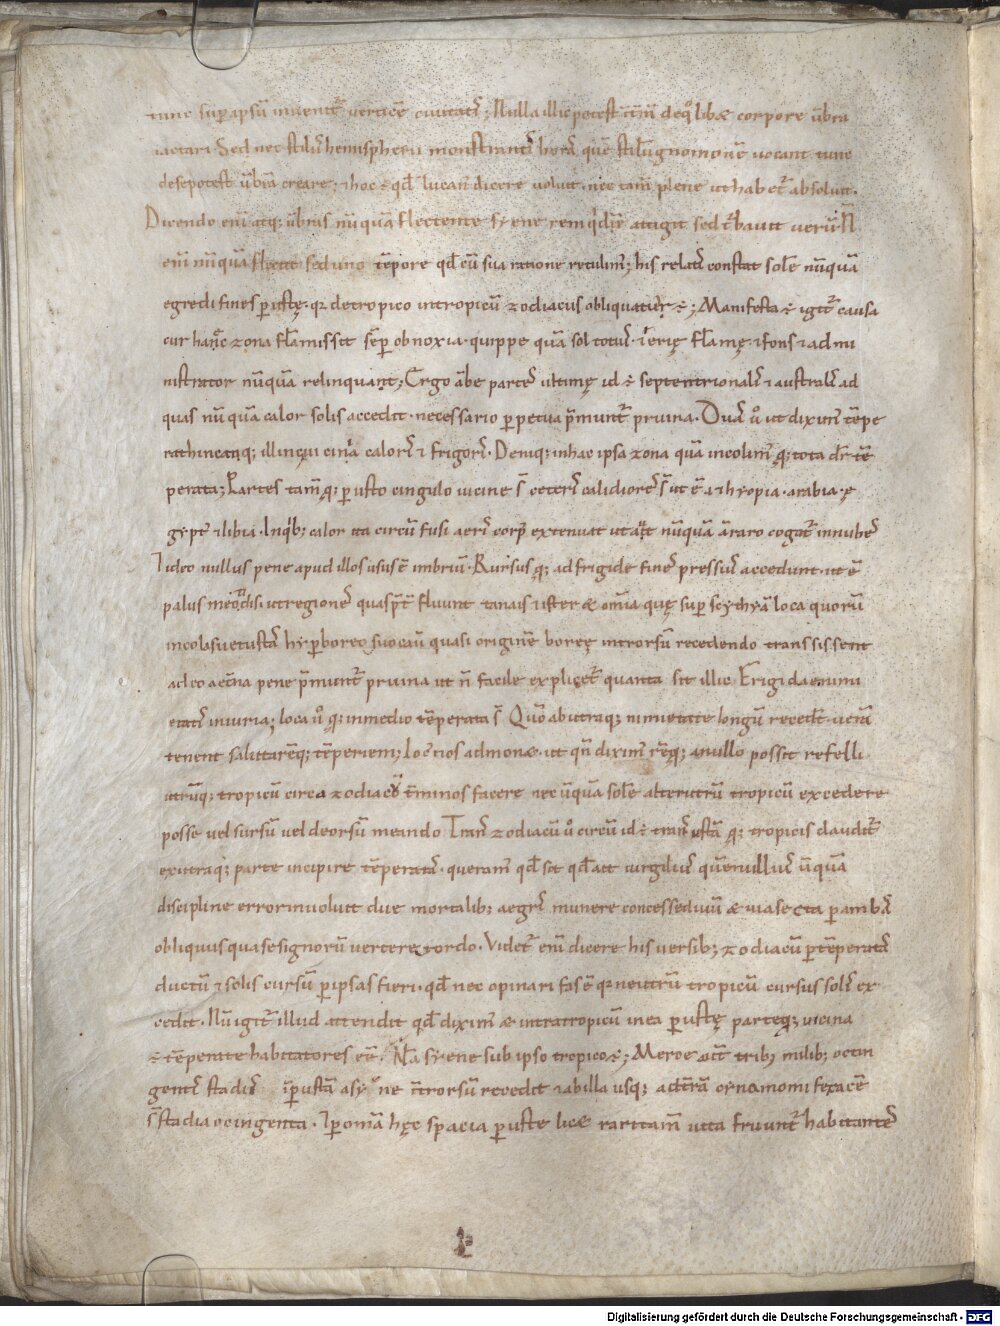 tunc suꝑ ipsũ inuenit᷒ uerticẽ ciuitatis̃; Nulla illic potest tc̃ inde q̊libæ corpore ũbra
iactari Sed nec stilus̃ hemispherii monstrantis̃ horas̃ quẽ stilũ gnomonẽ uocant tunc
de se potest ũbrã creare; ⁊ hoc ẽ qd̃ lucanus̃ dicere uoluit. nec tam̃ plene ut habet᷒ absoluit.
Dicendo eni᷒ atq; ũbras nũquã flectente syene rem quidẽ attigit sed t᷒bauit uerũ N̄
eni᷒ nũquã flectit sed uno tẽpore qd̃ cũ sua ratione retulim᷒; his relatis̃ constat solẽ nũquã
egredi fines ꝑustę. q᷒ de tropico in tropicũ zodiacus obliquatus ẽ; Manifesta ẽ igit᷒ causa
cur hæc zona flam̃is sit sẽꝑ obnoxia. quippe quã sol totius̃ ęthe᷒rię flam̃ę ⁊ fons ⁊ admi
nistrator nũquã relinquant; Ergo ãbe partes̃ ultimę id ẽ septentrionalis̃ ⁊ australis̃ ad
quas nũquã calor solis accedit. necessario ꝑpetua p̃munt᷒ pruina. Duas̃ u̾o ut dixim᷒ tẽpe
rat hinc atq; illinc uicinia caloris̃ ⁊ frigoris̃. Deniq; in hac ipsa zona quã incolim᷒ q̨; tota dr̃ tẽ
perata; Partes tam̃ q̨; ꝑusto cingulo uicine s̃ ceteris̃ calidiores̃ s̃ ut ẽ ęthyopia. arabia. ę
gypt᷒ ⁊ libia. In qͥb; calor ita circũfusi aeris̃ corp᷒ extenuat ut aut nũquã aut raro cogat᷒ in nubes̃
Ideo nullus pene apud illos usus ẽ imbriũ. Rursus q̨; ad frigide fines̃ pressius̃ accedunt. ut ẽ
palus meotis ut regiones̃ quas p̃t᷒ fluunt tanais ⁊ ister & omnia quę suꝑ scythyã loca quorũ
incolas uetustas̃ hyꝑboreos uocauit quasi originẽ boreę introrsũ recedendo transsissent
adeo aet̃na pene p̃munt᷒ pruina ut n̄ facile explicet᷒ quanta sit illic Frigidæ nimi
etatis̃ iniuria; loca u̾o q̨; in medio tẽperata s̃ Quõ ab utraq; nimietate longũ recedt̃. ueram
tenent salutarẽq; tẽperiem; Loc᷒ nos admonæ. ut qm̃ dixim᷒ rẽq; a nullo possit refelli
utrũq; tropicũ circa zodiacũ t̃minos facere nec ũquã solẽ alterutrũ tropicũ excedere
posse uel sursũ uel deorsũ meando Trans̃ zodiacũ u̾o circũ id ẽ trans̃ ustã q̨; tropicis claudit᷒
ex utraq; parte incipire tẽperatas̃. queram᷒ qd̃ sit qd̃ ait uirgilius̃ quẽ nullius̃ ũquã
discipline error inuoluit due mortalib; aegris̃ munere concesse diuũ & uia secta ꝑ ambas̃
obliquus qua se signorũ uerteret ordo. Videt᷒ eni᷒ dicere his uersib; zodiacũ ꝑ tẽperatas̃
ductũ ⁊ solis cursũ ꝑ ipsas fieri. qd̃ nec opinari fas ẽ q᷒ neutrũ tropicũ cursus solis̃ ex
cedit. Nũ igit᷒ illud attendit qd̃ dixim᷒ & intra tropicũ in ea ꝑustę parte q̨; uicina
ẽ tẽperate habitatores eẽ. Nã syene sub ipso tropico ẽ; Meroe aũt trib; milib; octin
gentis̃ stadiis̃ in ꝑustã a syene int̃rorsũ recedit ⁊ ab illa usq; ad t̃rã cynamomi feracẽ
s̃ stadia octingenta. Iꝑ om̃ia hęc spacia ꝑuste licæ rari tam̃ uita fruunt᷒ habitantes̃
Digitalisierung gefördert durch die Deutsche Forschungsgemeinschaft - DFG